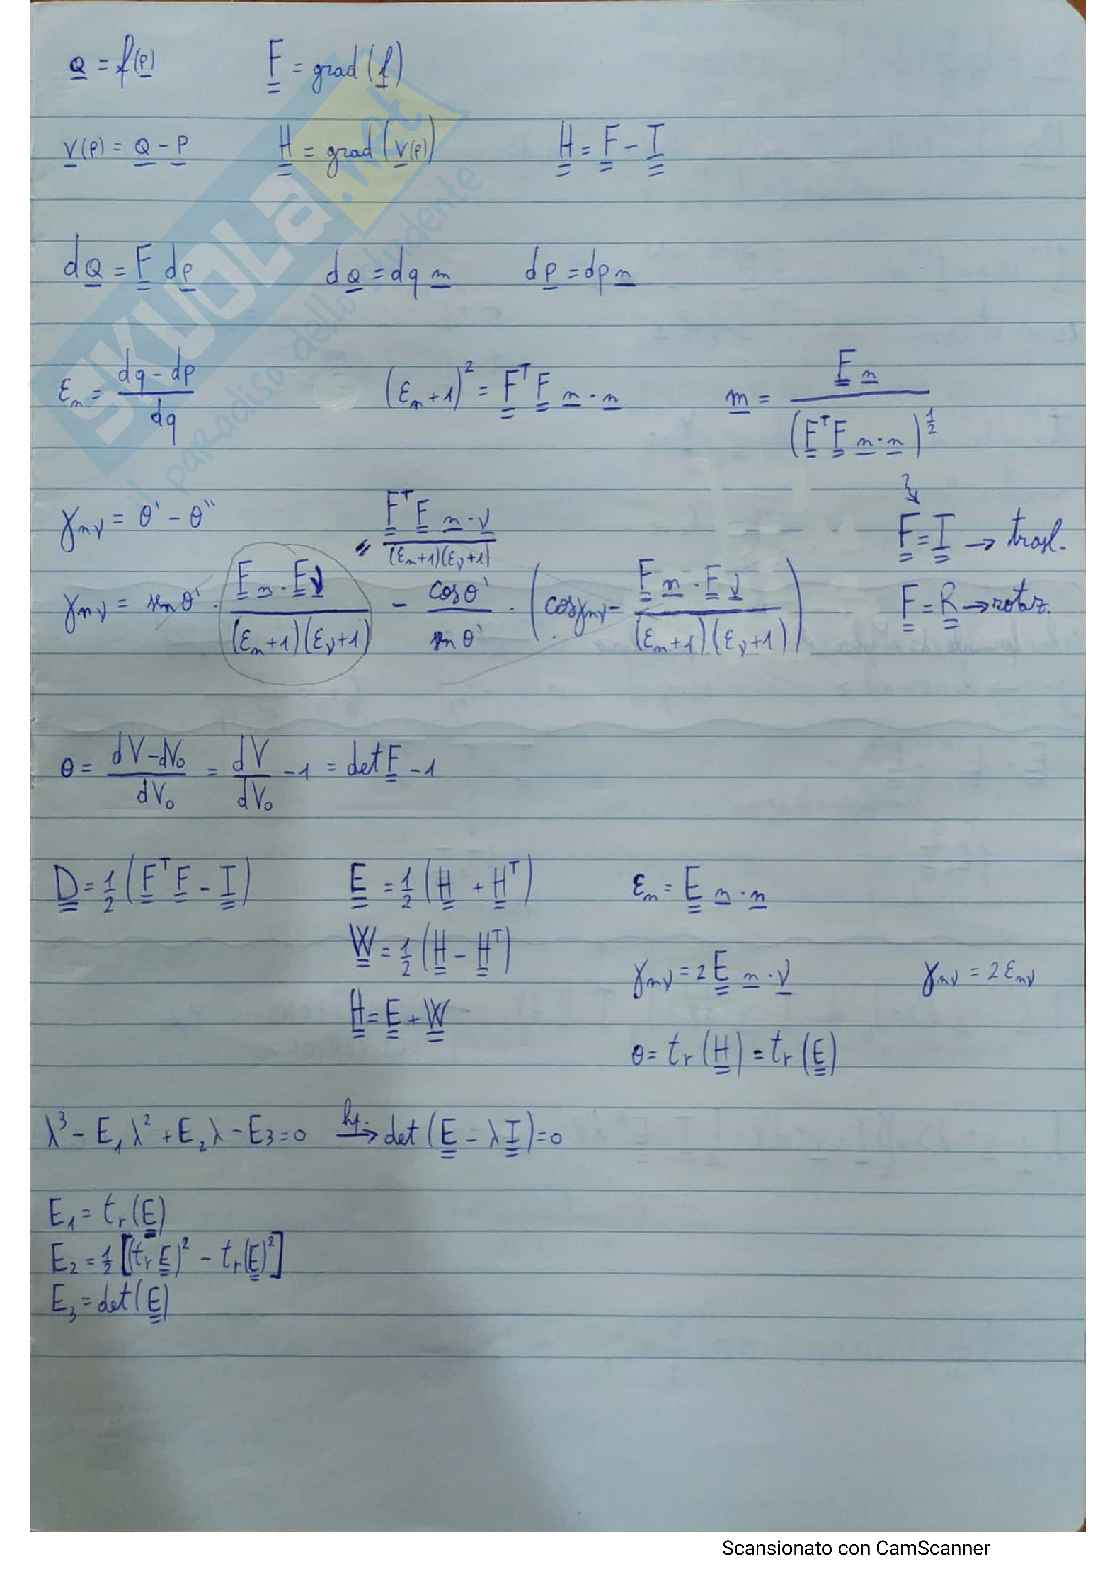 Q = f(P)    F = grad(f)
v(P) = Q - P    H = grad(v(P))    H = F - I
dQ = F dP    dQ = dq m    dP = dp n
εn = (dq - dp)/dq    (εn + 1)² = FᵀF n·n    m = F n/(FᵀF n·n)^½
γnν = θ' - θ''    FᵀF n·ν/((εn+1)(εν+1))    F = I → trasl.
γnν = sen θ' · F n · F ν/((εn+1)(εν+1)) - cos θ'/sen θ' · (cos γnν - F n · F ν/((εn+1)(εν+1)))    F = R → rotaz.
θ = (dV - dV₀)/dV₀ = dV/dV₀ - 1 = det F - 1
D = ½(FᵀF - I)    E = ½(H + Hᵀ)    εn = E n·n
W = ½(H - Hᵀ)
γnν = 2 E n·ν    γnν = 2 εnν
H = E + W
θ = tr(H) = tr(E)
λ³ - E₁λ² + E₂λ - E₃ = 0 → det(E - λI) = 0
E₁ = tr(E)
E₂ = ½[(tr E)² - tr(E)²]
E₃ = det(E)
SKUOLA.net
il paradiso dello studente
Scansionato con CamScanner